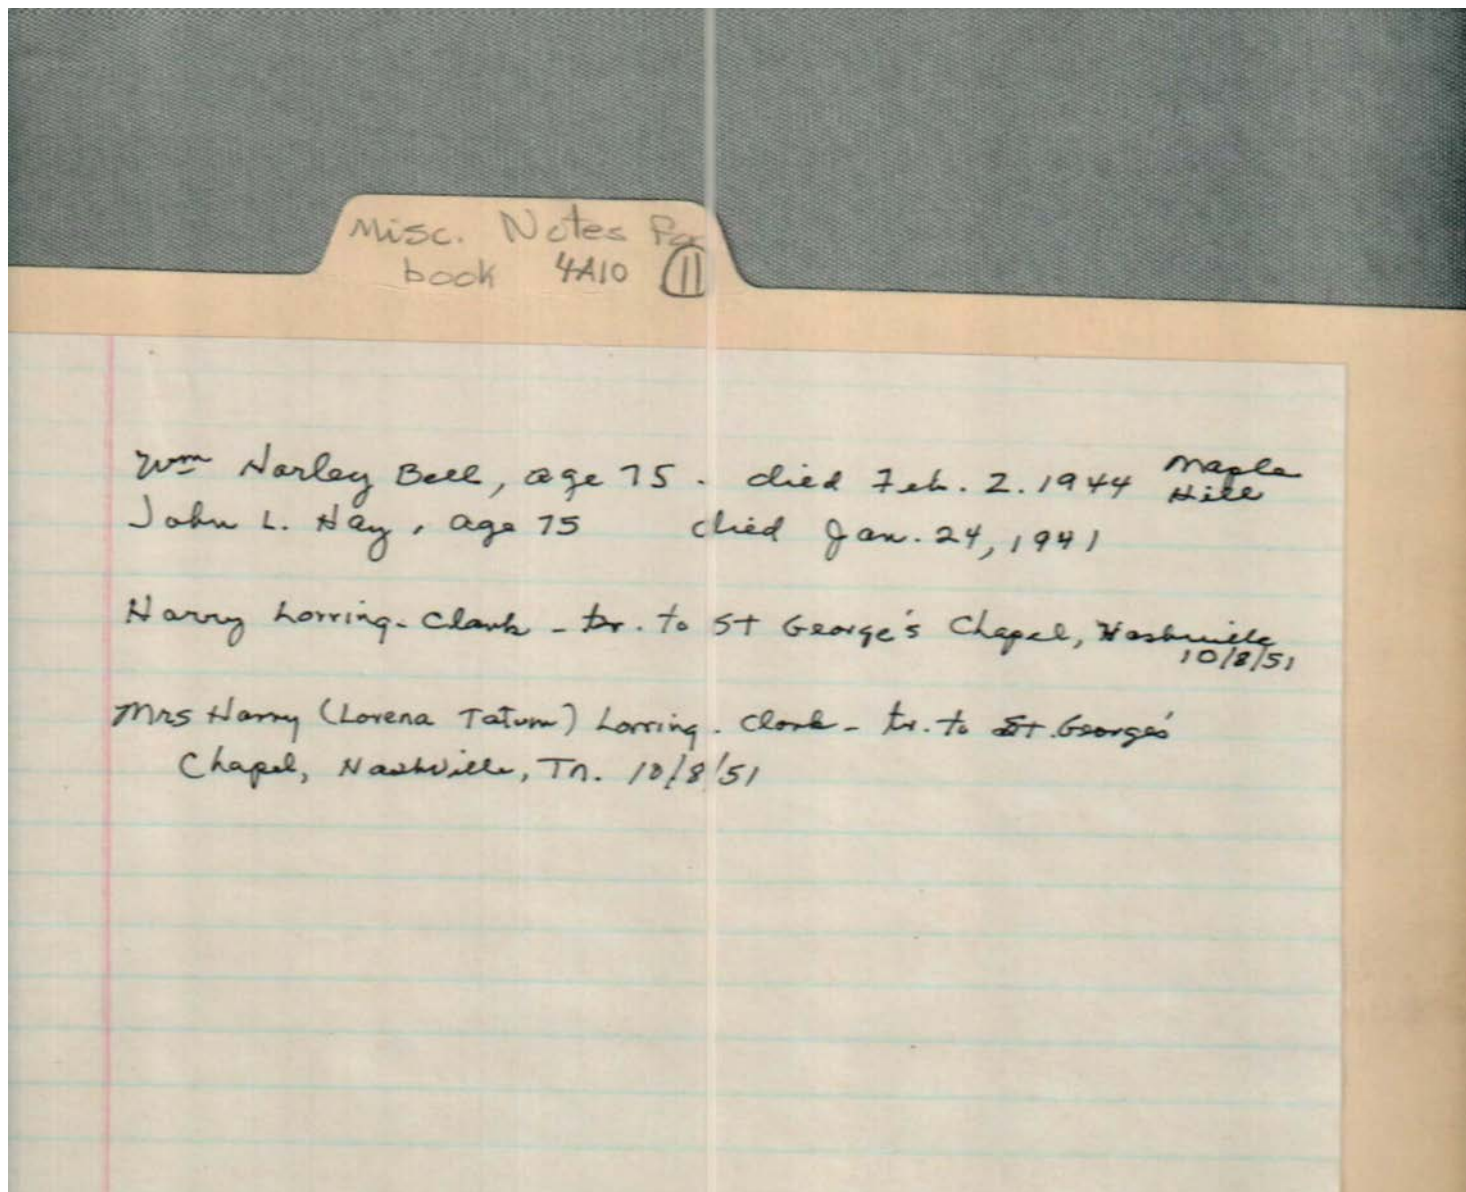 Misc. Notes for
book 4A10 11
Wm Harley Bell, age 75. died Feb. 2. 1944 Maple
Hill
John L. Hay, age 75 died Jan. 24, 1941
Harry Lorring-Clark - tr. to St George's Chapel, Nashville
10/8/51
Mrs Harry (Lorena Tatum) Lorring-Clark - tr. to St. George's
Chapel, Nashville, Tn. 10/8/51